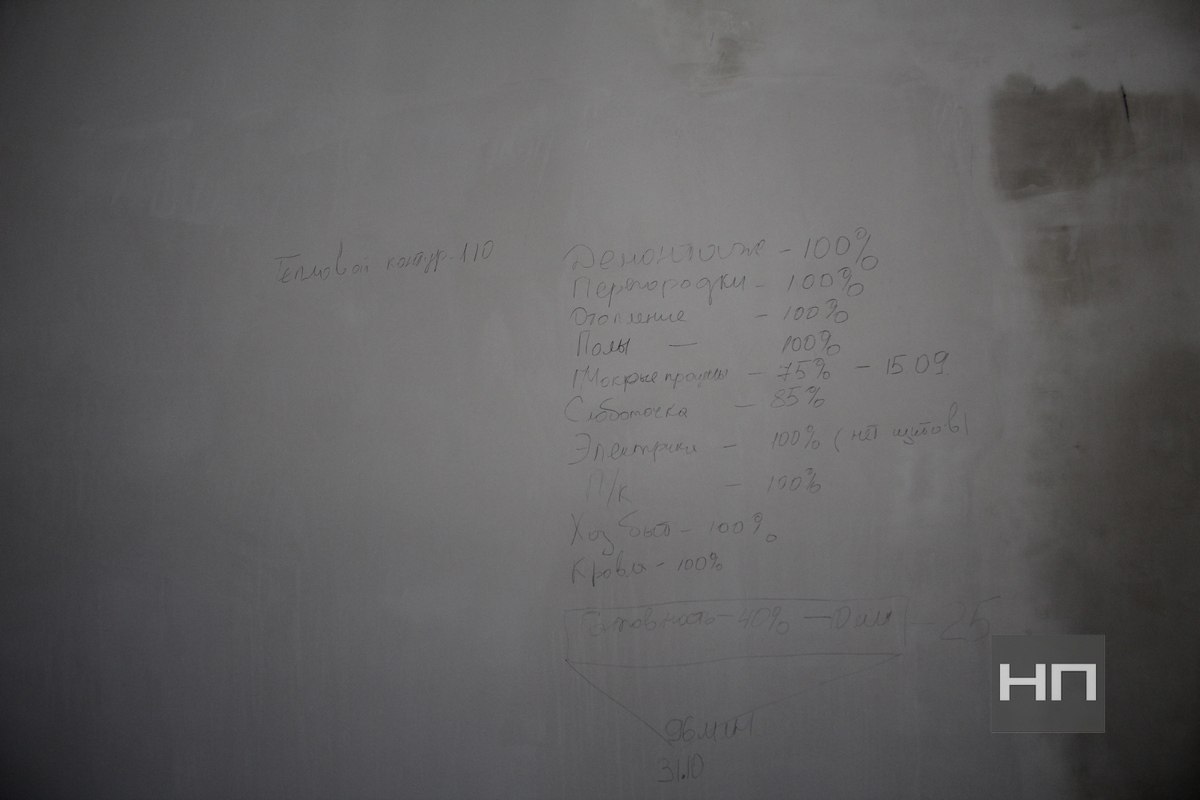 Тепловой контур 1.10
Демонтаж - 100%
Перегородки - 100%
Отопление - 100%
Полы — 100%
Мокрые процессы - 75% - 15.09
Слаботочка - 85%
Электрика - 100% (нет щитов)
П/К - 100%
Хоз быт - 100%
Кровля - 100%
Готовность - 40% - 25
96 млн
31.10
НП